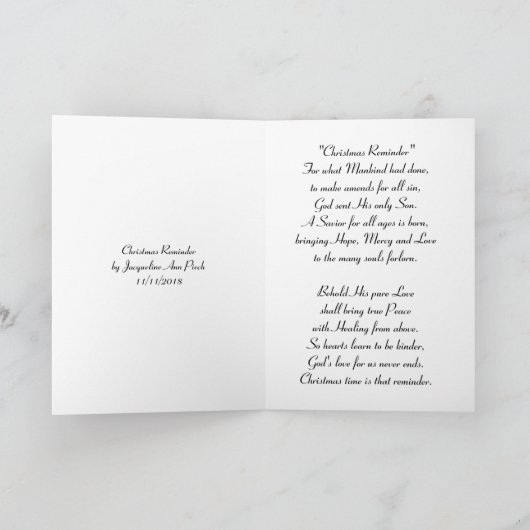 Christmas Reminder
by Jacqueline Ann Piech
11/11/2018
"Christmas Reminder"
For what Mankind had done,
to make amends for all sin,
God sent His only Son.
A Savior for all ages is born,
bringing Hope, Mercy and Love
to the many souls forlorn.
Behold His pure Love
shall bring true Peace
with Healing from above.
So hearts learn to be kinder,
God's love for us never ends.
Christmas time is that reminder.